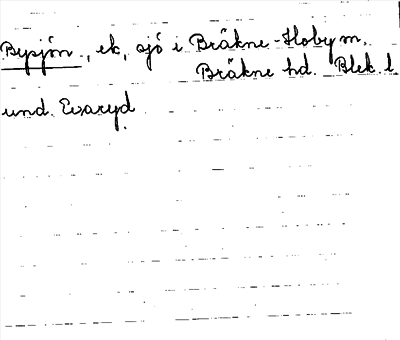 Bysjön, ek, sjö i Bräkne-Hoby sn,
Bräkne hd. Blek. l.
und. Evaryd